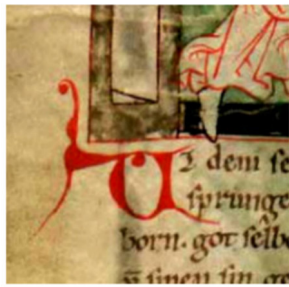 AUZ dem se
sprunge
born. got selbe
vñ sinen sin ge